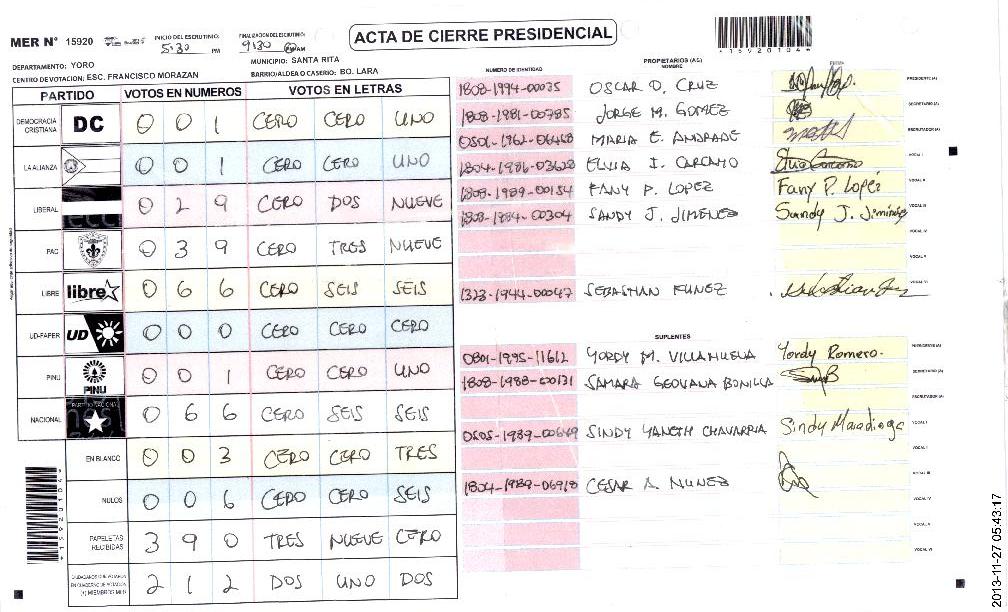 MER N° 15920
INICIO DEL ESCRUTINIO: 5:30 PM
FINALIZACION DEL ESCRUTINIO: 9:30 PM AM
ACTA DE CIERRE PRESIDENCIAL
*15920104*
DEPARTAMENTO: YORO
MUNICIPIO: SANTA RITA
CENTRO DE VOTACION: ESC. FRANCISCO MORAZAN
BARRIO/ALDEA O CASERIO: BO. LARA
PARTIDO VOTOS EN NUMEROS VOTOS EN LETRAS
DEMOCRACIA CRISTIANA DC 0 0 1 CERO CERO UNO
LA ALIANZA 0 0 1 CERO CERO UNO
LIBERAL 0 2 9 CERO DOS NUEVE
PAC 0 3 9 CERO TRES NUEVE
LIBRE libre 0 6 6 CERO SEIS SEIS
UD-FAPER UD 0 0 0 CERO CERO CERO
PINU PINU 0 0 1 CERO CERO UNO
NACIONAL 0 6 6 CERO SEIS SEIS
EN BLANCO 0 0 3 CERO CERO TRES
NULOS 0 0 6 CERO CERO SEIS
PAPELETAS RECIBIDAS 3 9 0 TRES NUEVE CERO
CIUDADANOS QUE VOTARON EN CUADERNO DE VOTACION (+) MIEMBROS MER 2 1 2 DOS UNO DOS
PROPIETARIOS (AS)
NUMERO DE IDENTIDAD NOMBRE FIRMA
1808-1994-00035 OSCAR D. CRUZ PRESIDENTE (A)
1808-1981-00785 JORGE M. GOMEZ SECRETARIO (A)
0501-1962-06468 MARIA E. ANDRADE ESCRUTADOR (A)
1804-1986-03628 ELVIA I. CARCAMO VOCAL I
1808-1989-00154 FANY P. LOPEZ Fany P. Lopéz VOCAL II
1808-1984-00304 SANDY J. JIMENEZ Sandy J. Jiminéz VOCAL III
VOCAL IV
VOCAL V
1323-1944-00047 SEBASTIAN NUNEZ VOCAL VI
SUPLENTES
0801-1995-11612 YORDY M. VILLANUEVA Yordy Romero. PRESIDENTE (A)
1808-1988-00131 SAMARA GEOVANA BONILLA SECRETARIO (A)
ESCRUTADOR (A)
0505-1989-00649 SINDY YANETH CHAVARRIA Sindy Maradiaga VOCAL I
VOCAL II
1804-1989-06918 CESAR A. NUNEZ VOCAL III
VOCAL IV
VOCAL V
VOCAL VI
2013-11-27 05:43:17